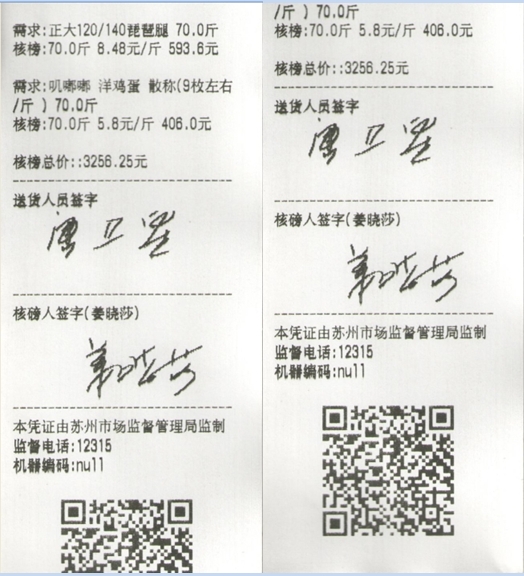 需求:正大120/140琵琶腿 70.0斤
核榜:70.0斤 8.48元/斤 593.6元
需求:叽嘟嘟 洋鸡蛋 散称(9枚左右
/斤 ) 70.0斤
核榜:70.0斤 5.8元/斤 406.0元
核榜总价::3256.25元
送货人员签字
核磅人签字(姜晓莎)
姜晓莎
本凭证由苏州市场监督管理局监制
监督电话:12315
机器编码:null
/斤 ) 70.0斤
核榜:70.0斤 5.8元/斤 406.0元
核榜总价::3256.25元
送货人员签字
核磅人签字(姜晓莎)
姜晓莎
本凭证由苏州市场监督管理局监制
监督电话:12315
机器编码:null